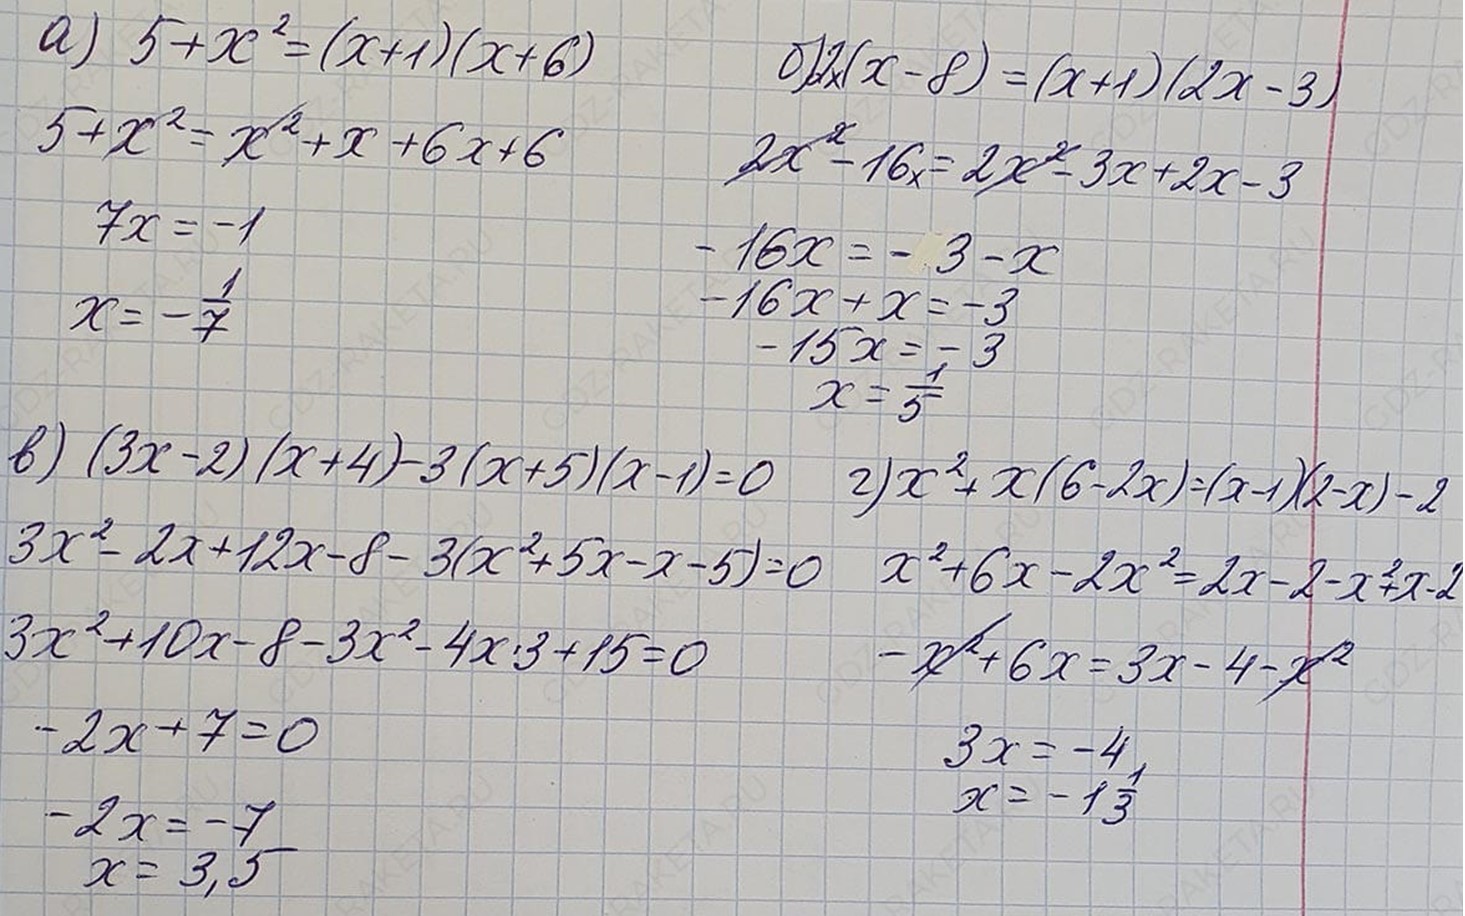 а) 5+x²=(x+1)(x+6)
5+x²=x²+x+6x+6
7x=-1
x=-1/7
б) 2x(x-8)=(x+1)(2x-3)
2x²-16x=2x²-3x+2x-3
-16x=-3-x
-16x+x=-3
-15x=-3
x=1/5
в) (3x-2)(x+4)-3(x+5)(x-1)=0
3x²-2x+12x-8-3(x²+5x-x-5)=0
3x²+10x-8-3x²-4x·3+15=0
-2x+7=0
-2x=-7
x=3,5
г) x²+x(6-2x)=(x-1)(2-x)-2
x²+6x-2x²=2x-2-x²+x-2
-x²+6x=3x-4-x²
3x=-4
x=-1 1/3
GDZ-RAKETA.RU